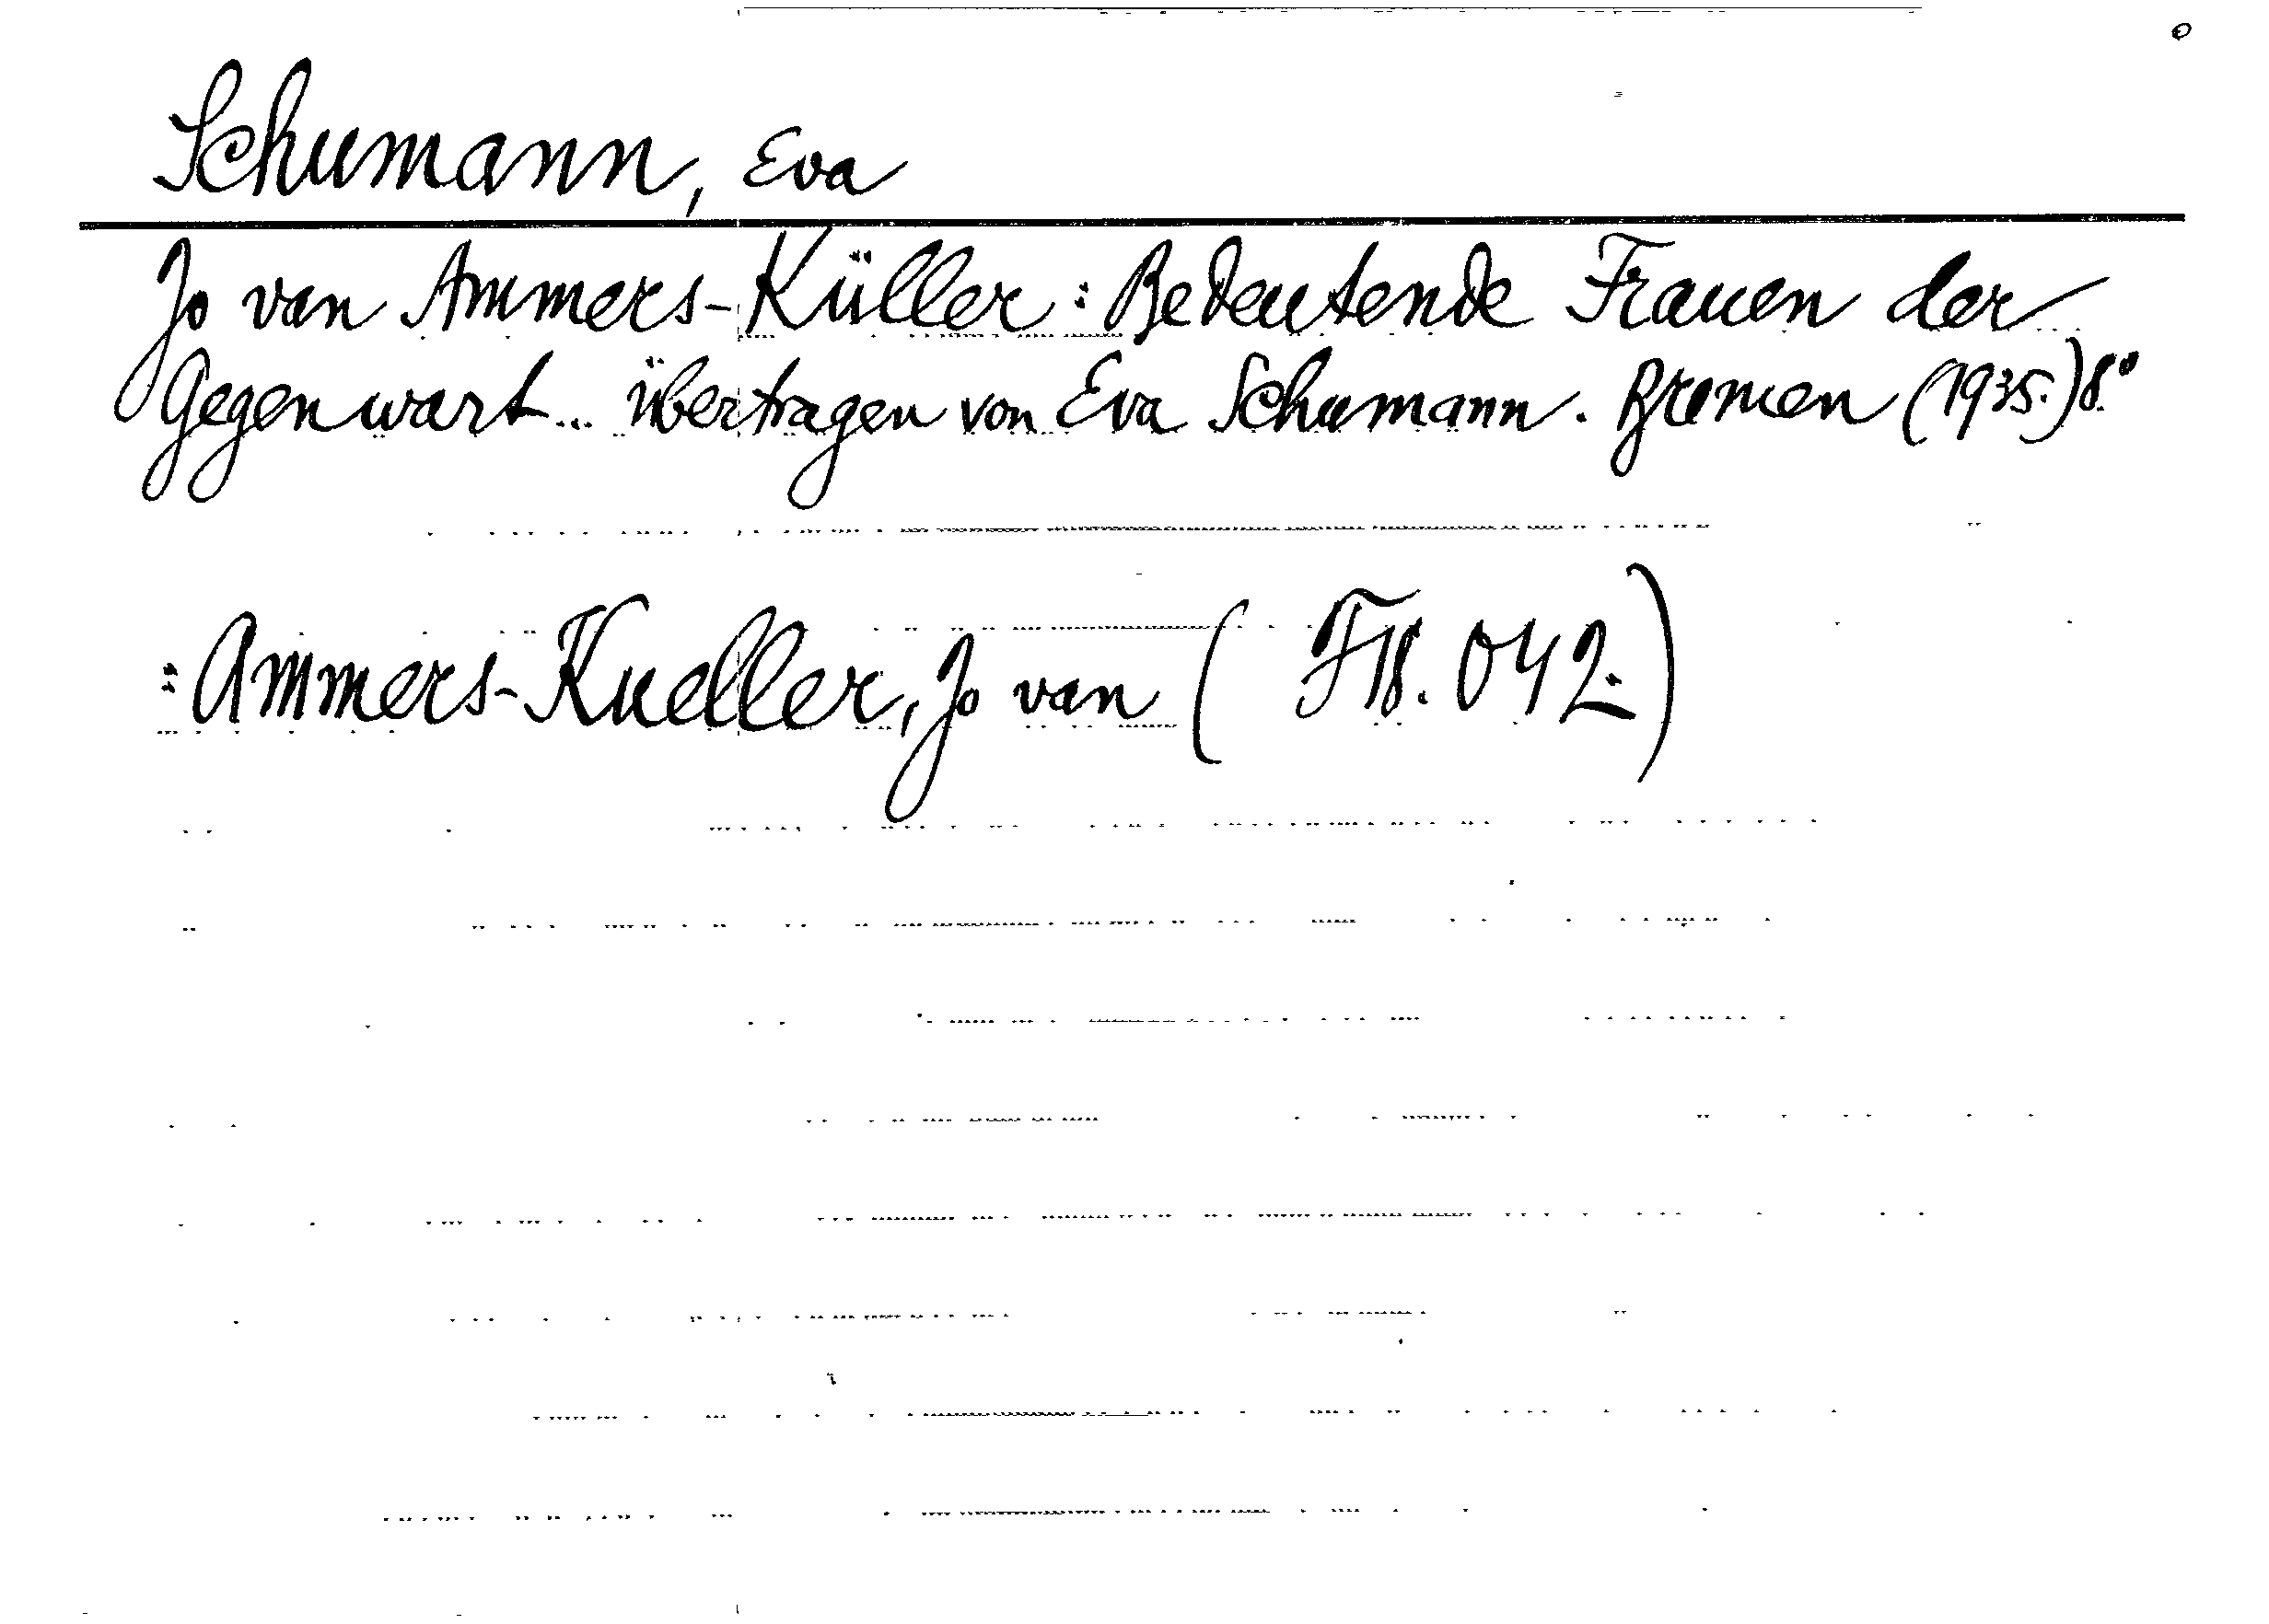 Schumann, Eva
Jo van Ammers-Küller: Bedeutende Frauen der
Gegenwart... übertragen von Eva Schumann. Bremen (1935.) 8°
: Ammers-Kueller, Jo van ( 042.)